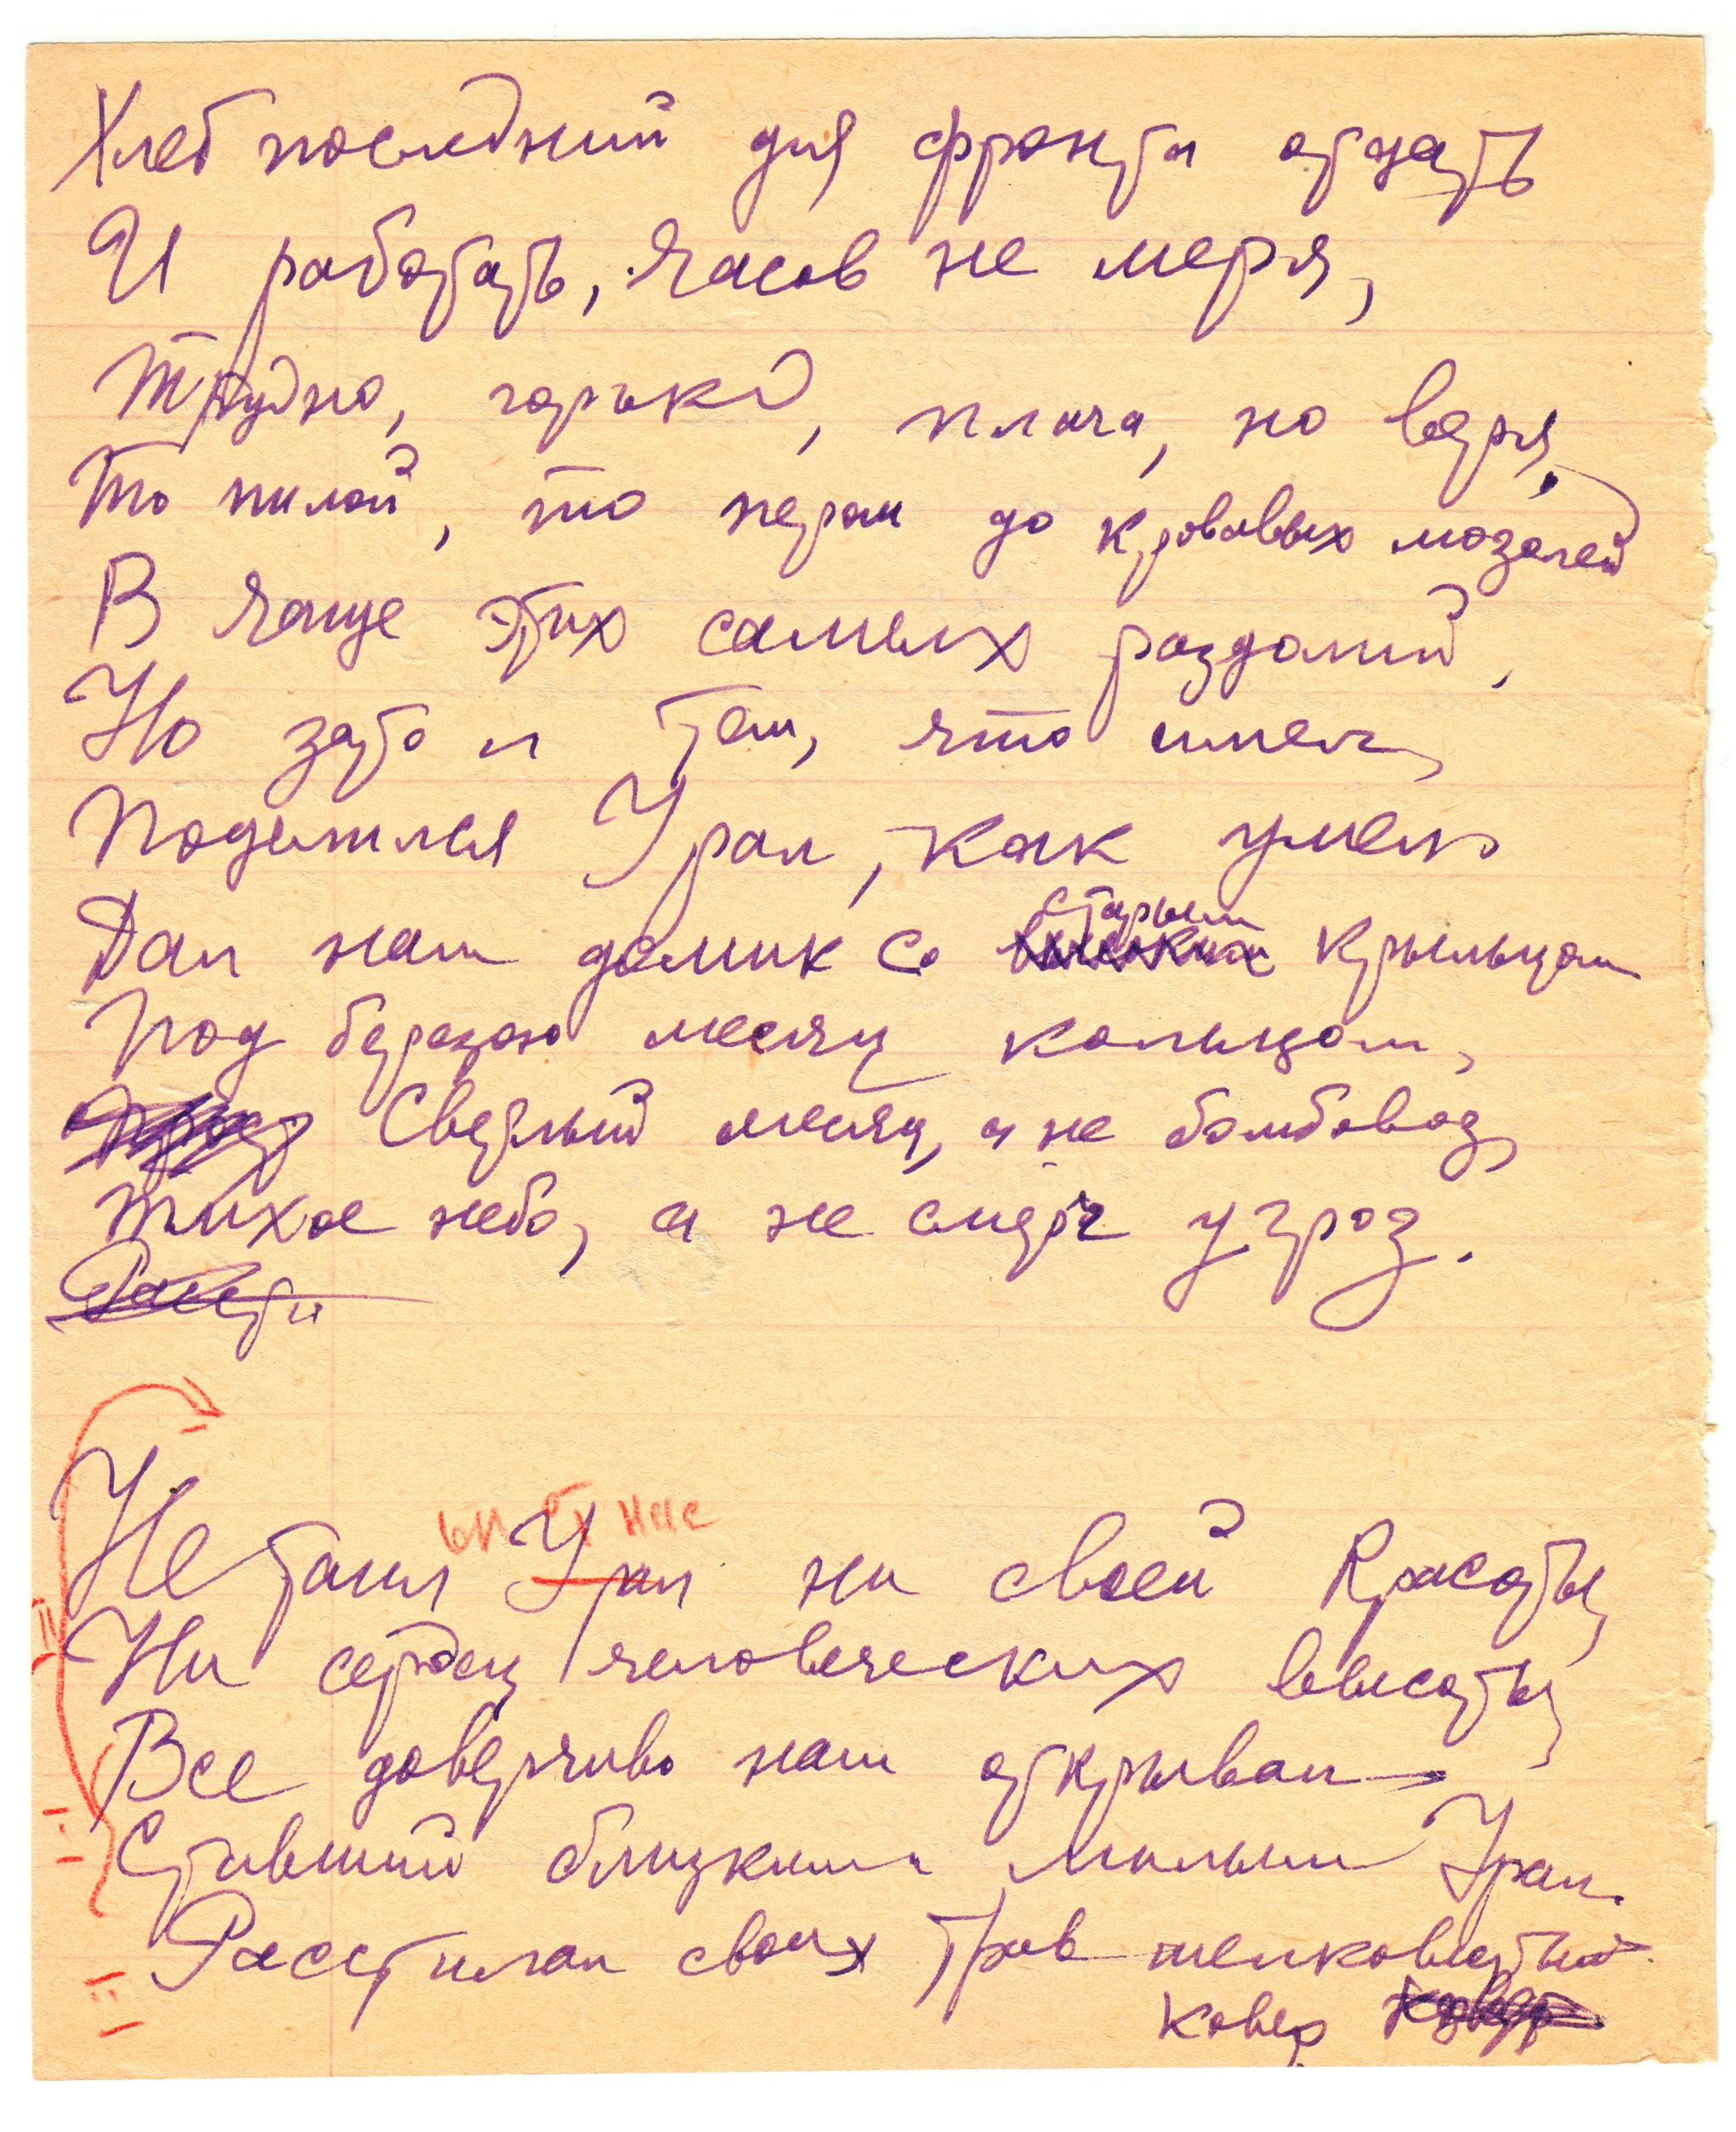 Хлеб последний для фронта отдать
И работать, часов не меря,
Трудно, горько, плача, но веря,
То пилой, то пером до кровавых мозолей
В чаще этих самых раздолий,
Но зато и тем, что имел,
Поделился Урал, как умел
Дал нам домик со старым крыльцом
Под березою месяц кольцом,
Светлый месяц, а не бомбовоз,
Тихое небо, а не угроз.
Не таил Урал ни своей красоты,
ыл от нас
Ни сердец человеческих высоты,
Все доверчиво нам открывал
Ставший близким и милым Урал.
Расстилал своих трав шелковистый
ковер